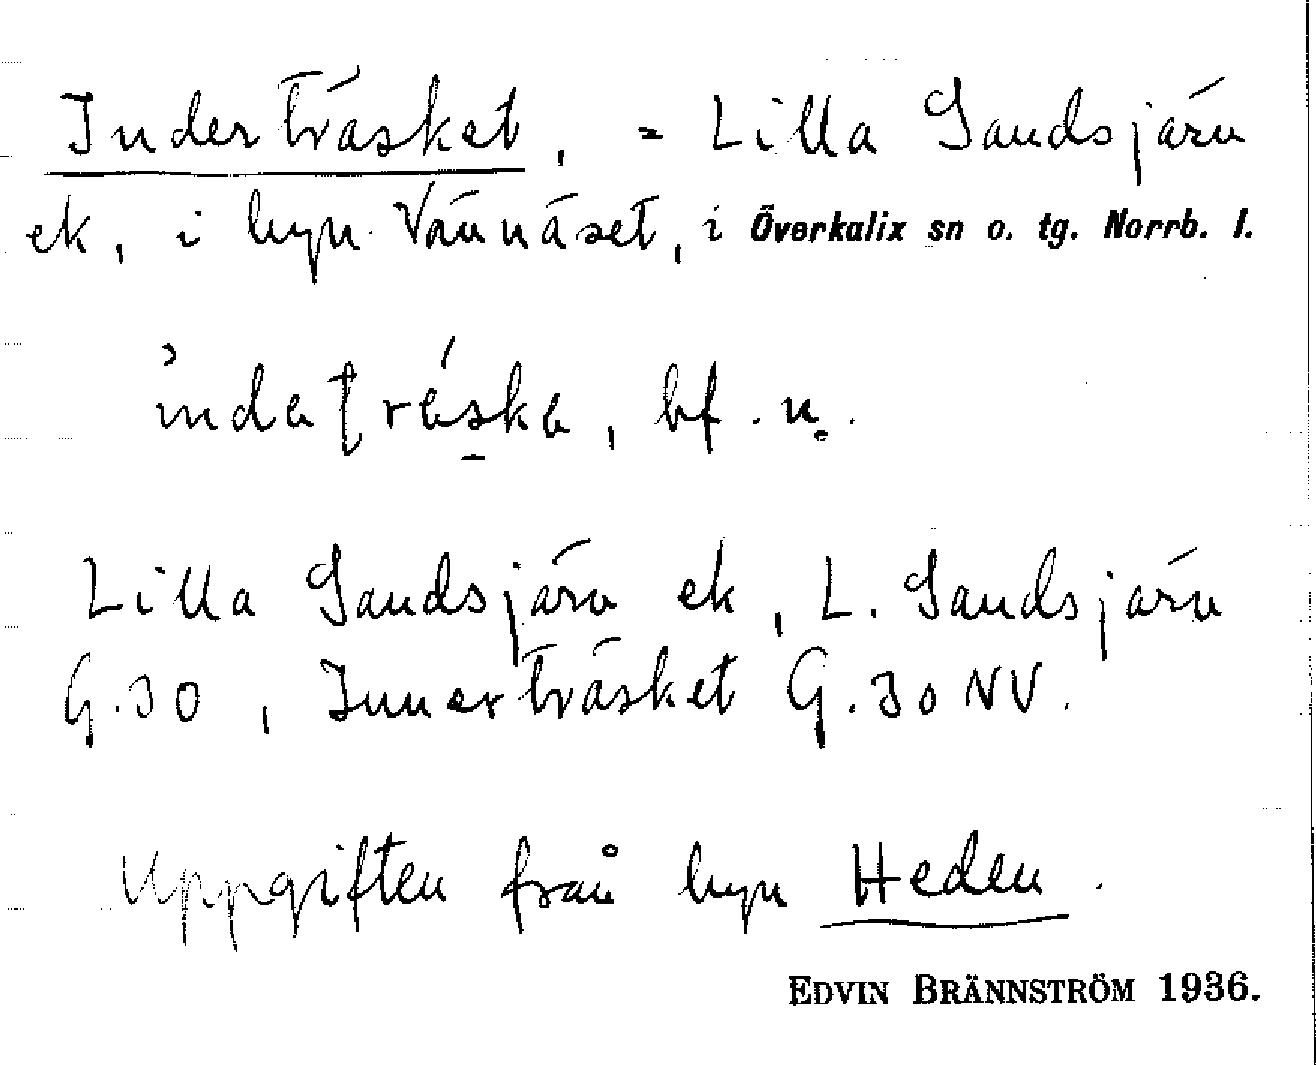 Inderträsket, = Lilla Sandsjärv
ek, i byn Vännäset, i Överkalix sn o. tg. Norrb. l.
bf. n.
Lilla Sandsjärv ek, L. Sandsjärv
G.30, Innerträsket G.30 NV.
Uppgiften från byn Heden.
EDVIN BRÄNNSTRÖM 1936.